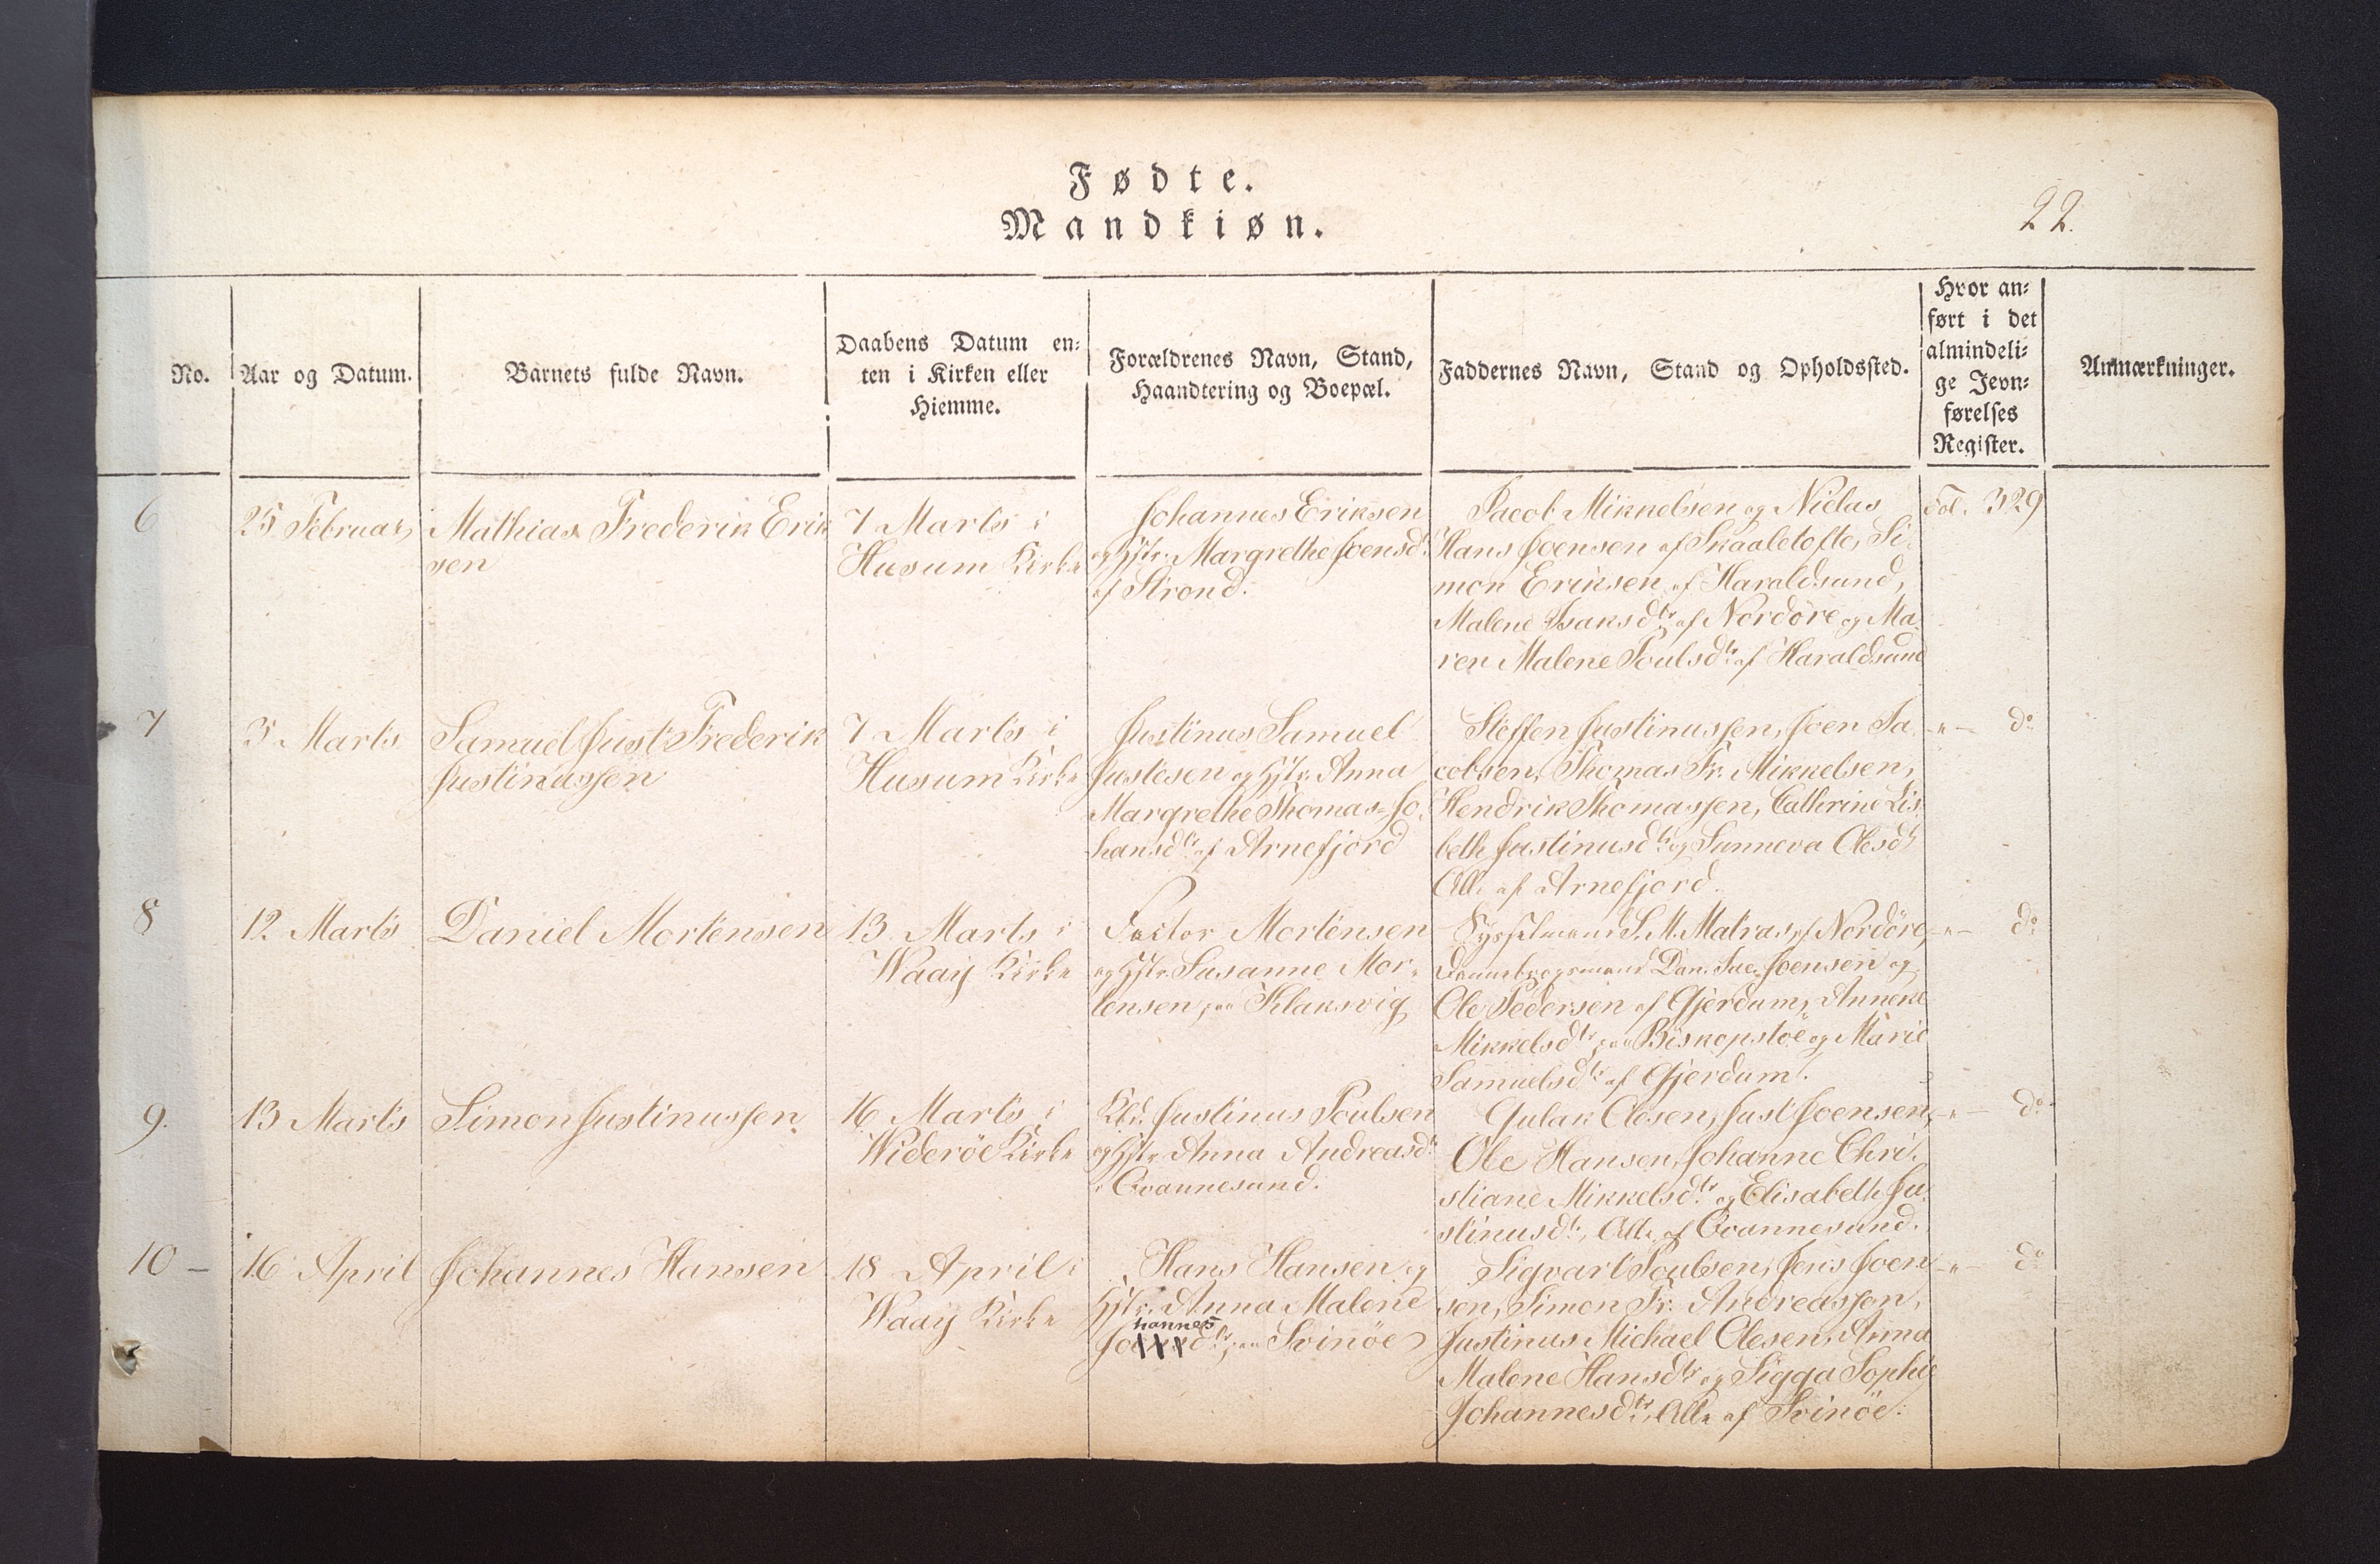 Fødte.
Mandkiøn.
22.
No.
Aar og Datum.
Barnets fulde Navn.
Daabens Datum en-
ten i Kirken eller
Hiemme.
Forældrenes Navn, Stand,
Haandtering og Boepæl.
Faddernes Navn, Stand og Opholdssted.
Hvor an-
ført i det
almindeli-
ge Jevn-
førelses
Register.
Anmærkninger.
6
25 Februar
Mathias Frederik Erik
sen
7 Marts i
Husum Kirke
Johannes Eriksen
og Hstr. Margrethe Joensdtr
af Strond.
Jacob Mikkelsen og Niclas
Hans Joensen af Skaaletofte, Si-
mon Eriksen af Haraldsund,
Malene Isaksdtr. af Nordöre og Ma
ren Malene Poulsdtr. af Haraldsund
Fol. 329
7
3 Marts
Samuel Just Frederik
Justinussen
7 Marts i
Husum Kirke
Justinus Samuel
Justesen og Hstr. Anna
Margrethe Thomas-Jo-
hansdtr. af Arnefjord
Steffen Justinussen, Joen Ja
cobsen, Thomas Fr. Mikkelsen,
Hendrik Thomassen, Cathrine Lis
beth Justinusdtr. og Sunneva Olesdtr
Alle af Arnefjord.
-"- do
8
12 Marts
Daniel Mortensen
13 Marts i
Waaij Kirke
Factor Mortensen
og Hstr. Susanne Mor-
tensen paa Klaksvig
Sysselmand S. M. Matras af Nordöre,
Dannebrogsmand Dan. Jac. Joensen og
Ole Pedersen af Gjerdum, Anneke
Mikkelsdtr. paa Biskopstöe og Marie
Samuelsdtr. af Gjerdum.
-"- do
9.
13 Marts
Simon Justinussen
16 Marts i
Wideröe Kirke
Kbd. Justinus Poulsen
og Hstr. Anna Andreasdtr.
i Qvannesund.
Gulak Olesen, Just Joensen,
Ole Hansen, Johanne Chri-
stiane Mikkelsdtr. og Elisabeth Ju
stinusdtr., Alle af Qvannesund.
-"- do
10 -
16 April
Johannes Hansen
18 April i
Waaij Kirke
Hans Hansen og
Hstr. Anna Malene
hannes
Jo dtr. paa Svinöe
Sigvart Poulsen, Jens Joen
sen, Simon Fr. Andreassen,
Justinus Michael Olesen, Anna
Malene Hansdtr. og Sigga Sophie
Johannesdtr., Alle af Svinöe.
-"- do